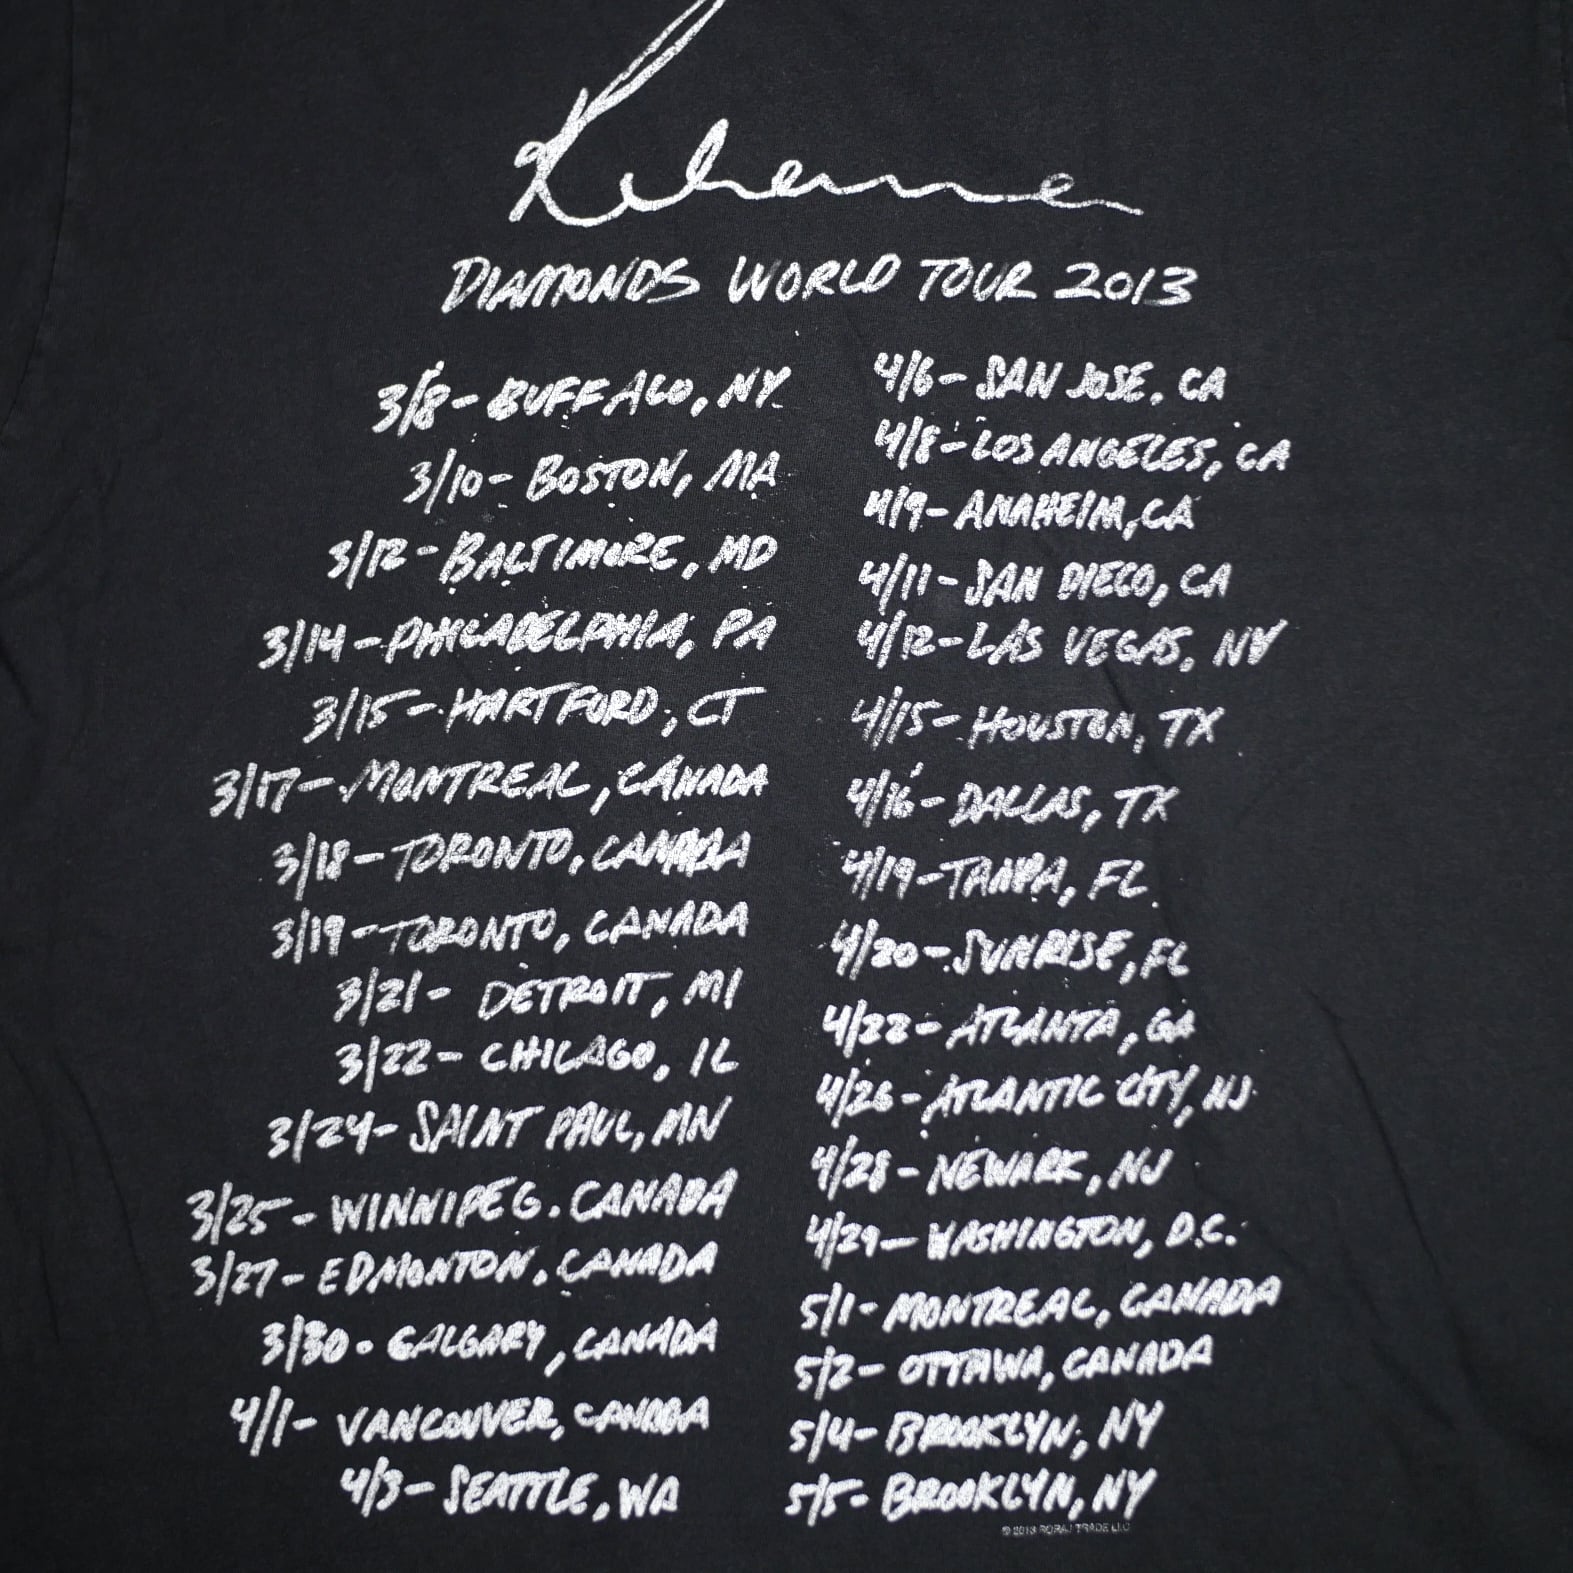 Rihanna
DIAMONDS WORLD TOUR 2013
3/8- BUFFALO, NY
3/10- BOSTON, MA
3/12- BALTIMORE, MD
3/14- PHILADELPHIA, PA
3/15- HARTFORD, CT
3/17- MONTREAL, CANADA
3/18- TORONTO, CANADA
3/19- TORONTO, CANADA
3/21- DETROIT, MI
3/22- CHICAGO, IL
3/24- SAINT PAUL, MN
3/25- WINNIPEG. CANADA
3/27- EDMONTON. CANADA
3/30- CALGARY, CANADA
4/1- VANCOUVER, CANADA
4/3- SEATTLE, WA
4/6- SAN JOSE, CA
4/8- LOS ANGELES, CA
4/9- ANAHEIM, CA
4/11- SAN DIEGO, CA
4/12- LAS VEGAS, NV
4/15- HOUSTON, TX
4/16- DALLAS, TX
4/19- TAMPA, FL
4/20- SUNRISE, FL
4/22- ATLANTA, GA
4/26- ATLANTIC CITY, NJ
4/28- NEWARK, NJ
4/29- WASHINGTON, D.C.
5/1- MONTREAL, CANADA
5/2- OTTAWA, CANADA
5/4- BROOKLYN, NY
5/5- BROOKLYN, NY
© 2013 RORAJ TRADE LLC